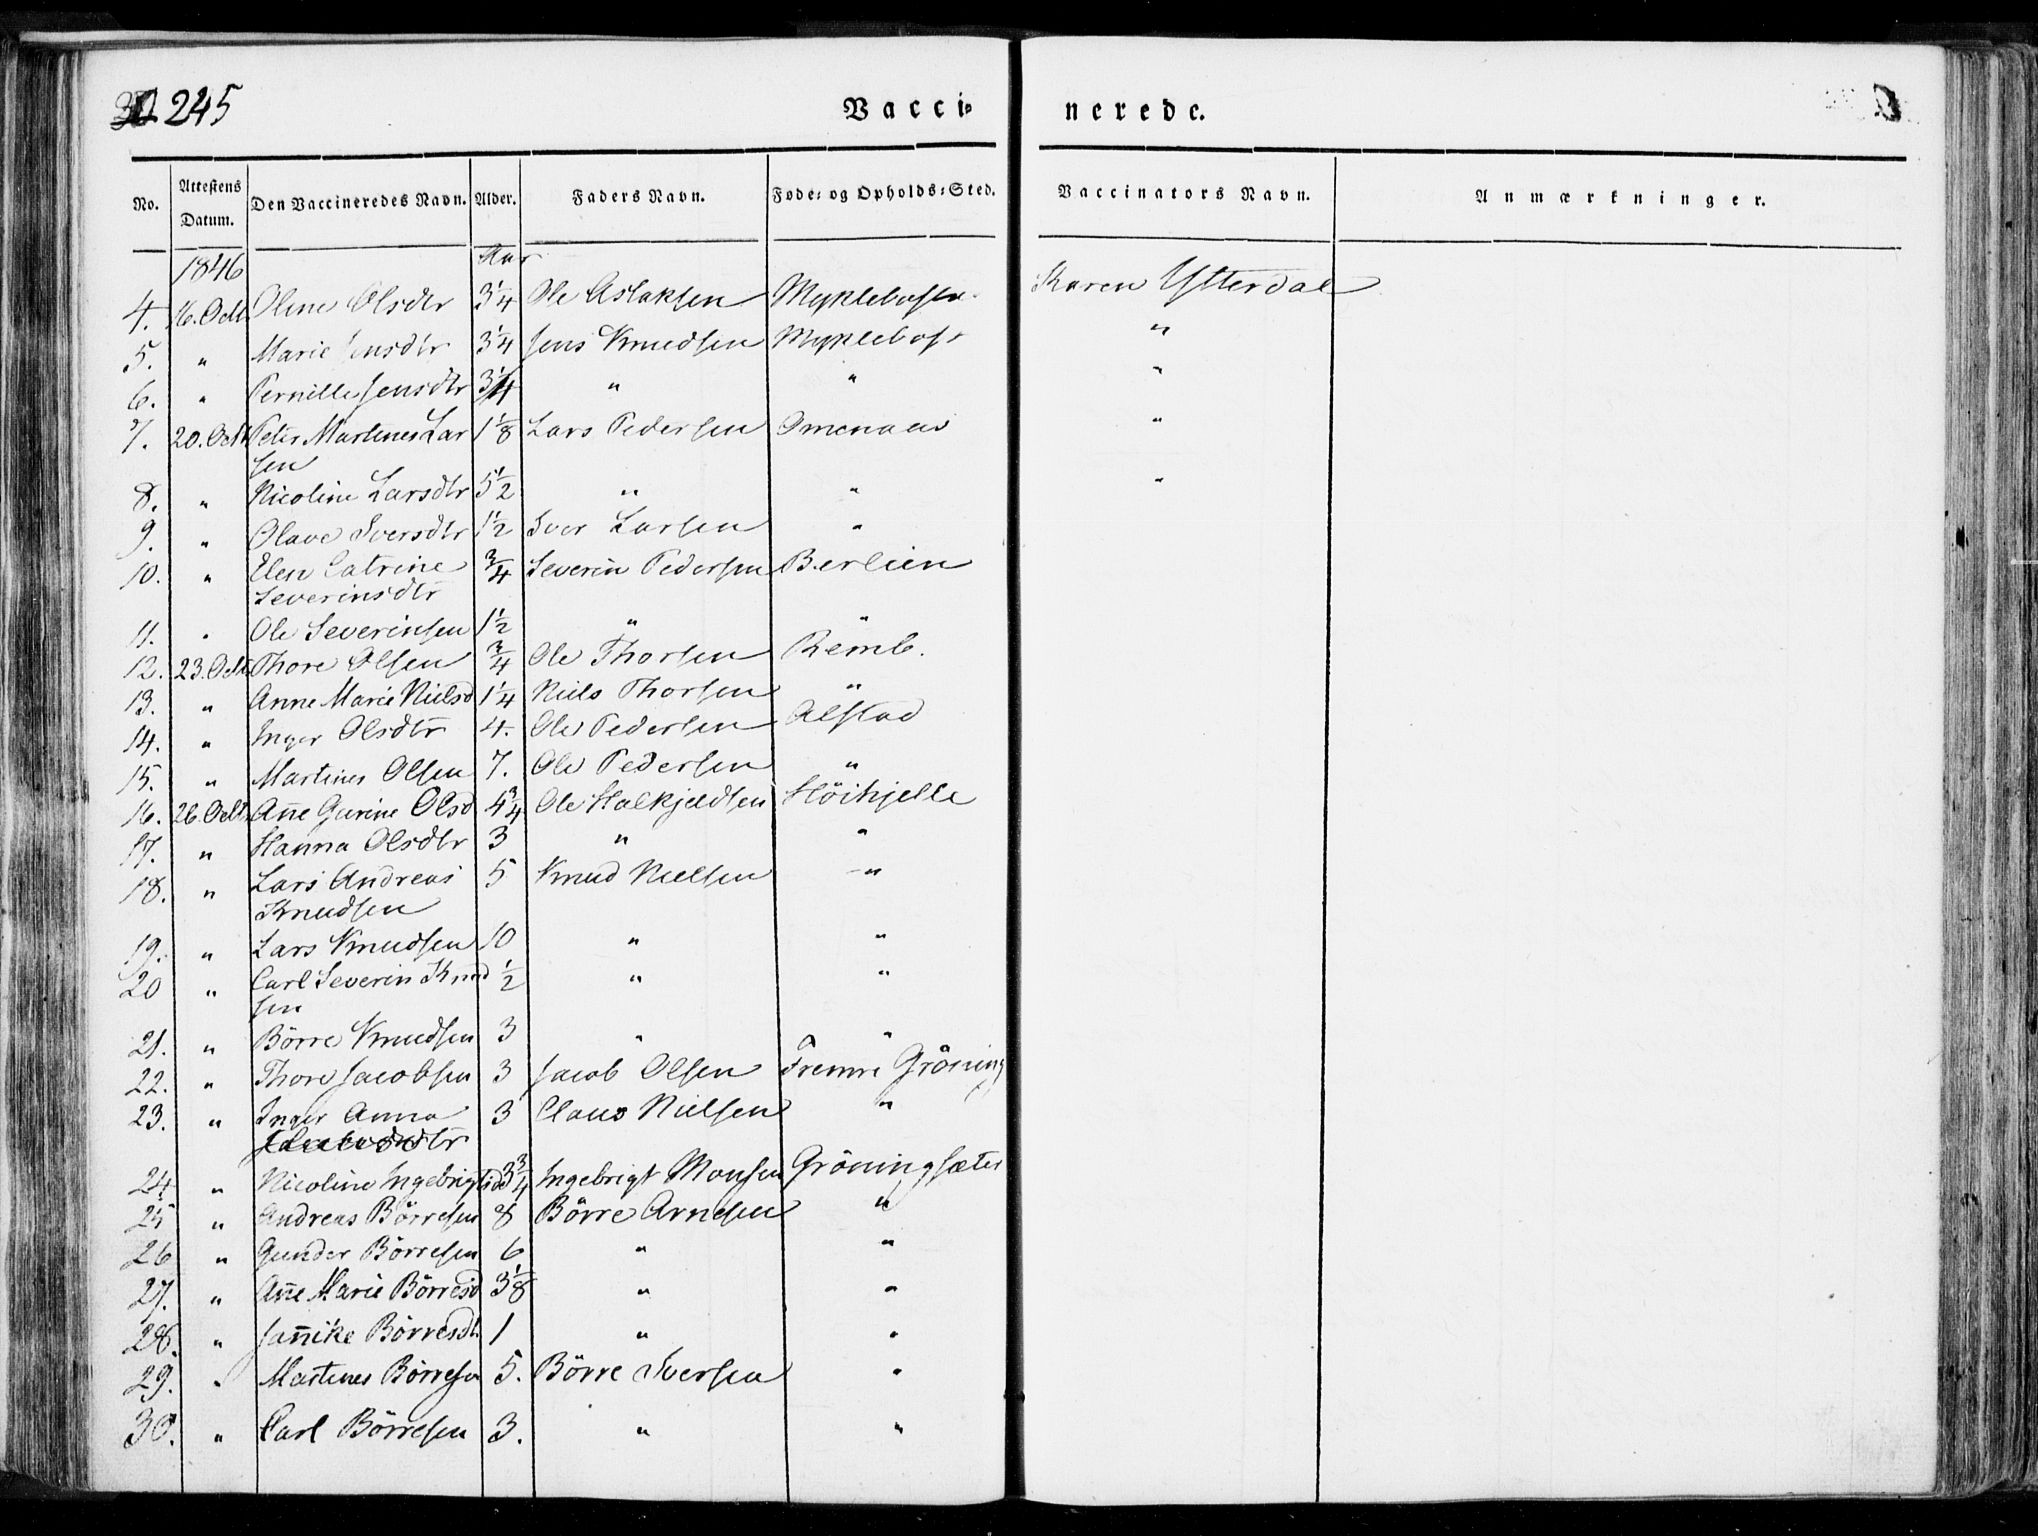 245
Vacci= nerede.
No. Attestens Datum. Den Vaccineredes Navn. Alder. Faders Navn. Føde= og Opholds=Sted. Vaccinators Navn. Anmærkninger.
1846 Aar
4. 16. Octb Oline Olsdtr 3 1/4 Ole Aslaksen Myklebost Karen Ytterdal
5. " Marie Jensdtr 3 1/4 Jens Knudsen Myklebost "
6. " Pernille Jensdtr 3 1/4 " " "
7. 20. Octb Peter Martines Lar 1 1/8 Lars Pedersen Omenaas "
sen
8. " Nicoline Larsdtr 5 1/2 " " "
9. " Olave Iversdtr 1 1/2 Iver Larsen "
10. " Elen Catrine 3/4 Severin Pedersen Berlien
Severinsdtr
11. " Ole Severinsen 1 1/2 " "
12. 23. Octb Thore Olsen 3/4 Ole Thorsen Remb.
13. " Anne Marie Nielsd 1 1/4 Niels Thorsen "
14. " Inger Olsdtr 4. Ole Pedersen Alstad
15. " Martines Olsen 7. Ole Pedersen "
16. 26. Octb Ane Gurine Olsd 4 3/4 Ole Halkjeldsen Höihjelle
17. " Hanna Olsdtr 3 " "
18. " Lars Andreas 5 Knud Nielsen "
Knudsen
19. " Lars Knudsen 10 " "
20 " Carl Severin Knud 1/2 " "
sen
21. " Börre Knudsen 3 " "
22. " Thore Jacobsen 3 Jacob Olsen Fremre Gröning
23. " Inger Anna 3 Claus Nielsen "
24 " Nicoline Ingebrigtsd 3 3/4 Ingebrigt Monsen Gröningsæter
25 " Andreas Börresen 8 Börre Arnesen "
26 " Gunder Börresen 6 " "
27. " Ane Marie Börresd 3 1/8 " "
28. " Janike Börresdt 1 " "
29. " Martines Börresen 5. Börre Iversen "
30. " Carl Börresen 3. " "